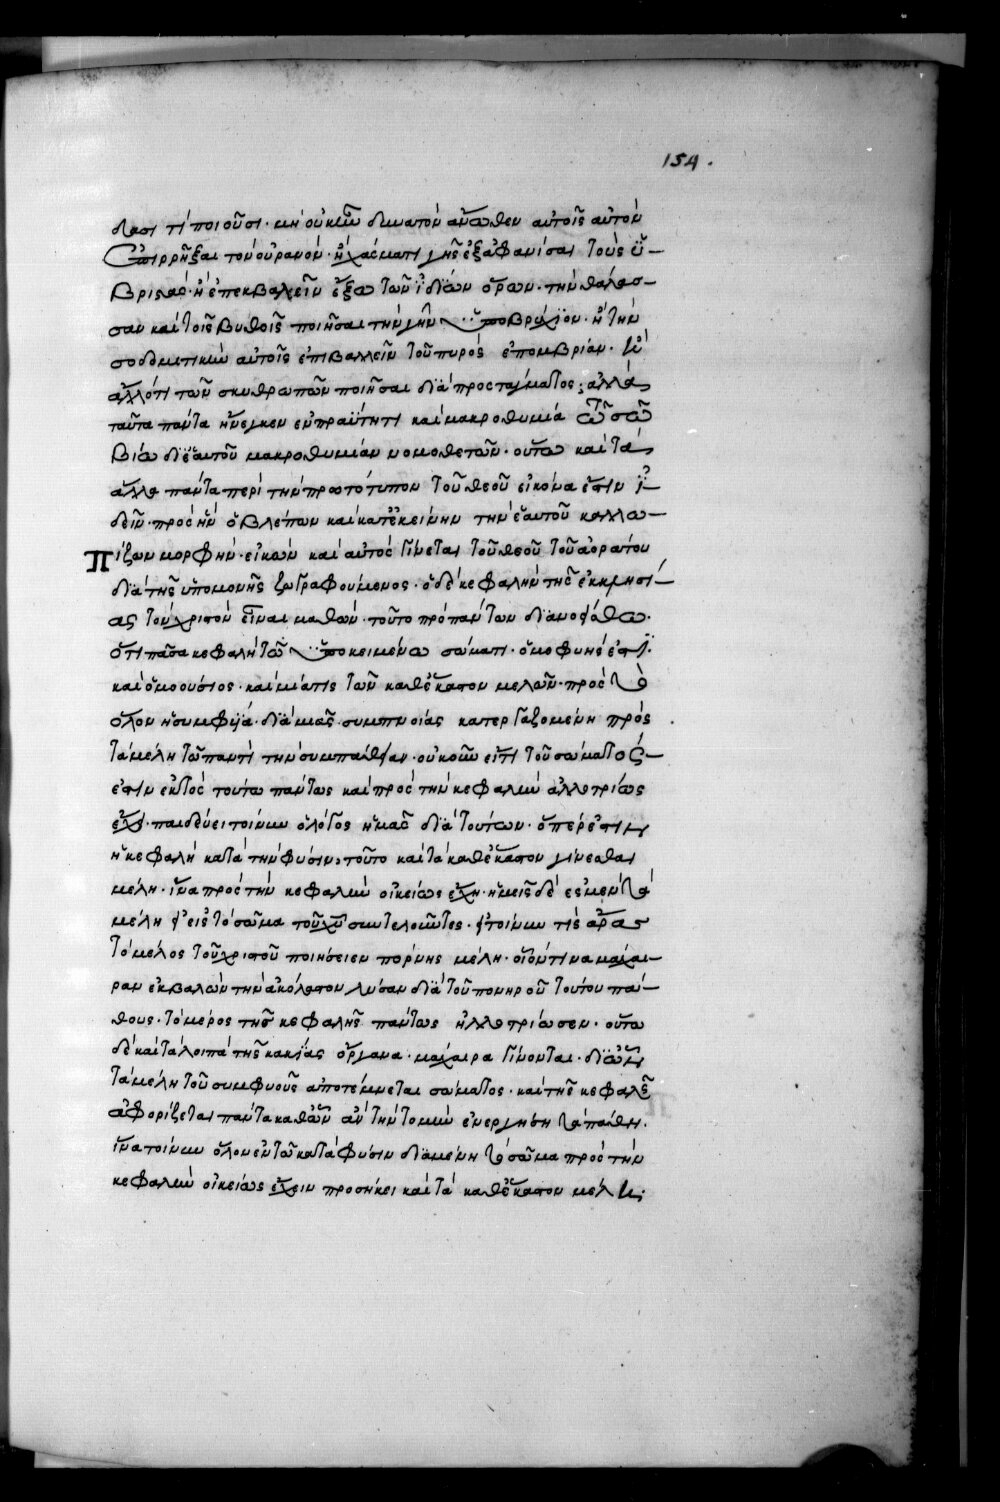 154.
δασι τί ποιοῦσι· μὴ οὐκ ἦν δυνατὸν ἄνωθεν αὐτοῖς αὐτὸν
ἐπιρρῆξαι τὸν οὐρανόν· ἢ χάσματι γῆς ἐξαφανίσαι τοὺς ὑ-
βριστάς· ἢ ἐπεκβαλεῖν ἔξω τῶν ἰδίων ὅρων· τὴν θάλασ-
σαν καὶ τοῖς βυθοῖς ποιῆσαι τὴν γῆν ὑποβρύχιον· ἢ τὴν
σοδομιτικὴν αὐτοῖς ἐπιβαλλεῖν τοῦ πυρὸς ἐπομβρίαν· ἢ
ἄλλό τι τῶν σκυθρωπῶν ποιῆσαι διὰ προσταγματος; ἀλλὰ
ταῦτα πάντα ἤνεγκεν ἐν πραΰτητι καὶ μακροθυμία ὦν σῶ
βίω δι' ἑαυτοῦ μακροθυμίαν νομοθετῶν· οὕτω καὶ τὰ
ἄλλα πάντα περὶ τὴν πρωτότυπον τοῦ θεοῦ εἰκόνα ἔστιν ἰ-
δεῖν· πρὸς ἣν ὁ βλέπων καὶ κατ' ἐκείνην τὴν ἑαυτοῦ καλλω-
πίζων μορφήν· εἰκὼν καὶ αὐτὸς γίνεται τοῦ θεοῦ τοῦ ἀοράτου
διὰ τῆς ὑπομονῆς ζωγραφούμενος· ὁ δὲ κεφαλὴν τῆς ἐκκλησί-
ας τὸν χριστὸν εἶναι μαθών· τοῦτο πρὸ πάντων διανοείσθω·
ὅτι πᾶσα κεφαλὴ τῶ ὑποκειμένω σώματι· ὁμοφυής ἐστι·
καὶ ὁμοούσιος· καὶ μία τις τῶν καθέκαστον μελῶν· πρὸς τὸ
ὅλον ἡ συμφυΐα· διὰ μιᾶς συμπνοίας κατεργαζομένη πρὸς
τὰ μέλη τῶ παντὶ τὴν συμπάθειαν· οὐκοῦν εἴ τι τοῦ σώματος
ἐστὶν ἐκτὸς τούτω πάντως καὶ πρὸς τὴν κεφαλὴν ἀλλοτρίως
ἔχει· παιδεύει τοίνυν ὁ λόγος ἡμᾶς διὰ τούτων· ὅπερ ἐστὶν
ἡ κεφαλὴ κατὰ τὴν φύσιν· τοῦτο καὶ τὰ καθέκαστον γίνεσθαι
μέλη· ἵνα πρὸς τὴν κεφαλὴν οἰκείως ἔχη· ἡμεῖς δέ ἐσμεν τὰ
μέλη οἱ εἰς τὸ σῶμα τοῦ χυ συντελοῦντες· εἰ τοίνυν τίς ἄρας
τὸ μέλος τοῦ χριστοῦ ποιήσειεν πόρνης μέλη· οἷόν τινα μάχαι-
ραν ἐκβαλὼν τὴν ἀκόλαστον λύσσαν διὰ τοῦ πονηροῦ τούτου πά-
θους· τὸ μέρος τῆς κεφαλῆς πάντως ἠλλοτρίωσεν· οὕτω
δὲ καὶ τὰ λοιπὰ τῆς κακίας ὄργανα· μάχαιρα γίνονται· δι' ὧν
τὰ μέλη τοῦ συμφυοῦς ἀποτέμνεται σώματος· καὶ τῆς κεφαλῆς
ἀφορίζεται πάντα καθ' ὧν ἂν τὴν τομὴν ἐνεργήση τὰ πάθη·
ἵνα τοίνυν ὅλον ἐν τῶ κατὰ φύσιν διαμένη τὸ σῶμα πρὸς τὴν
κεφαλὴν οἰκείως ἔχειν προσήκει καὶ τὰ καθέκαστον μέλη·